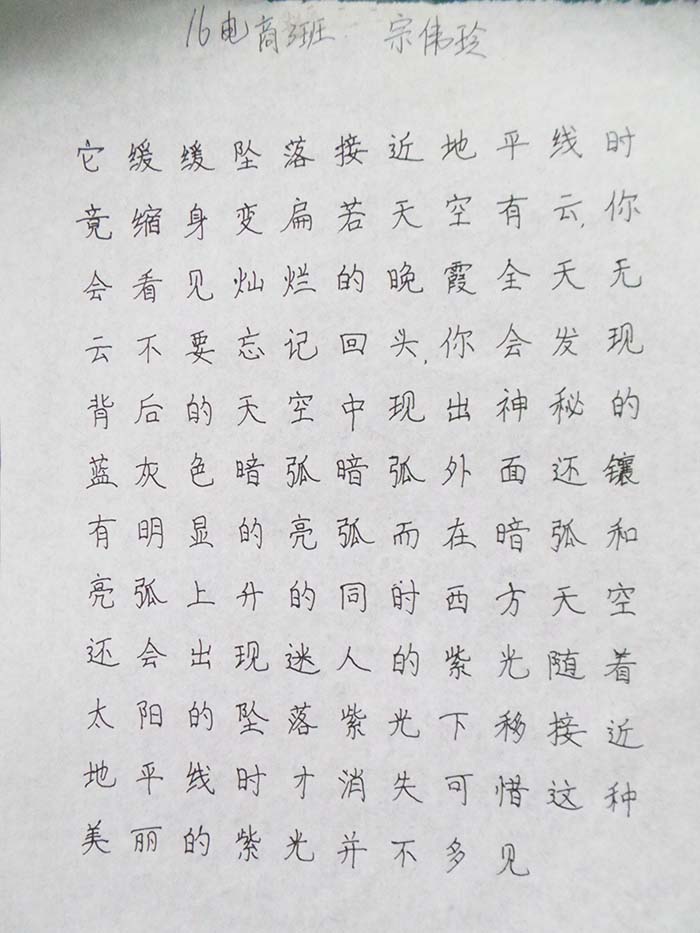 16电商班 宗伟玲
它缓缓坠落接近地平线时
竟缩身变扁若天空有云,你
会看见灿烂的晚霞全天无
云不要忘记回头,你会发现
背后的天空中现出神秘的
蓝灰色暗弧暗弧外面还镶
有明显的亮弧而在暗弧和
亮弧上升的同时西方天空
还会出现迷人的紫光随着
太阳的坠落紫光下移接近
地平线时才消失可惜这种
美丽的紫光并不多见